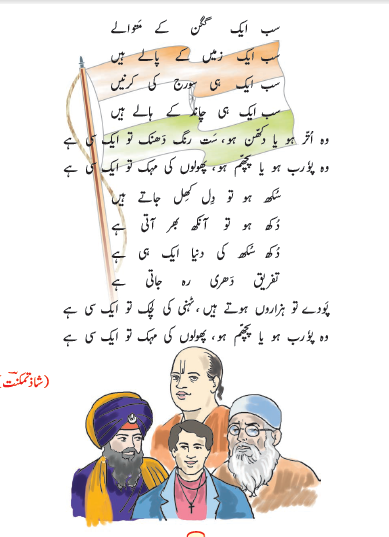 سب ایک گگن کے متوالے
سب ایک زمیں کے پالے ہیں
سب ایک ہی سورج کی کرنیں
سب ایک ہی چاند کے ہالے ہیں
وہ اُتّر ہو یا دکھّن ہو، سَت رنگ دَھنک تو ایک سی ہے
وہ پورب ہو یا پچھّم ہو، پھولوں کی مہک تو ایک سی ہے
سُکھ ہو تو دِل کِھل جاتے ہیں
دُکھ ہو تو آنکھ بھر آتی ہے
دُکھ سُکھ کی دنیا ایک ہی ہے
تفریق دَھری رہ جاتی ہے
پَودے تو ہزاروں ہوتے ہیں، ٹہنی کی لچک تو ایک سی ہے
وہ پورب ہو یا پچھّم ہو، پھولوں کی مہک تو ایک سی ہے
(شاذ تمکنت)